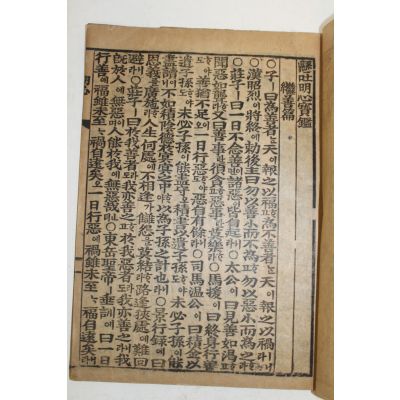 懸吐明心寶鑑
繼善篇
○子ㅣ曰爲善者는天이報之以福하고爲不善者는天이報之以禍니라
○漢昭烈이將終에勅後主曰勿以善小而不爲하고勿以惡小而爲之하라
○莊子ㅣ曰一日不念善이면諸惡이皆自起니라○太公이曰見善如渴하고
聞惡如聾하라又曰善事란須貪하고惡事란莫樂하라○馬援이曰終身行
善이라도善猶不足이오一日行惡이라도惡自有餘니라○司馬溫公이曰積金以
遺子孫이라도未必子孫이能盡守오積書以遺子孫이라도未必子孫이能
盡讀이니不如積陰德於冥冥之中하야以爲子孫之計也니라○景行錄에曰
恩義를廣施하라人生何處에不相逢가讐怨을莫結하라路逢狹處면難回
避니라○莊子ㅣ曰於我善者도我亦善之하고於我惡者도我亦善之니라我
旣於人에無惡이면人能於我에無惡哉인저○東岳聖帝ㅣ垂訓에曰一日
行善에福雖未至나禍自遠矣오一日行惡에禍雖未至나福自遠矣니라